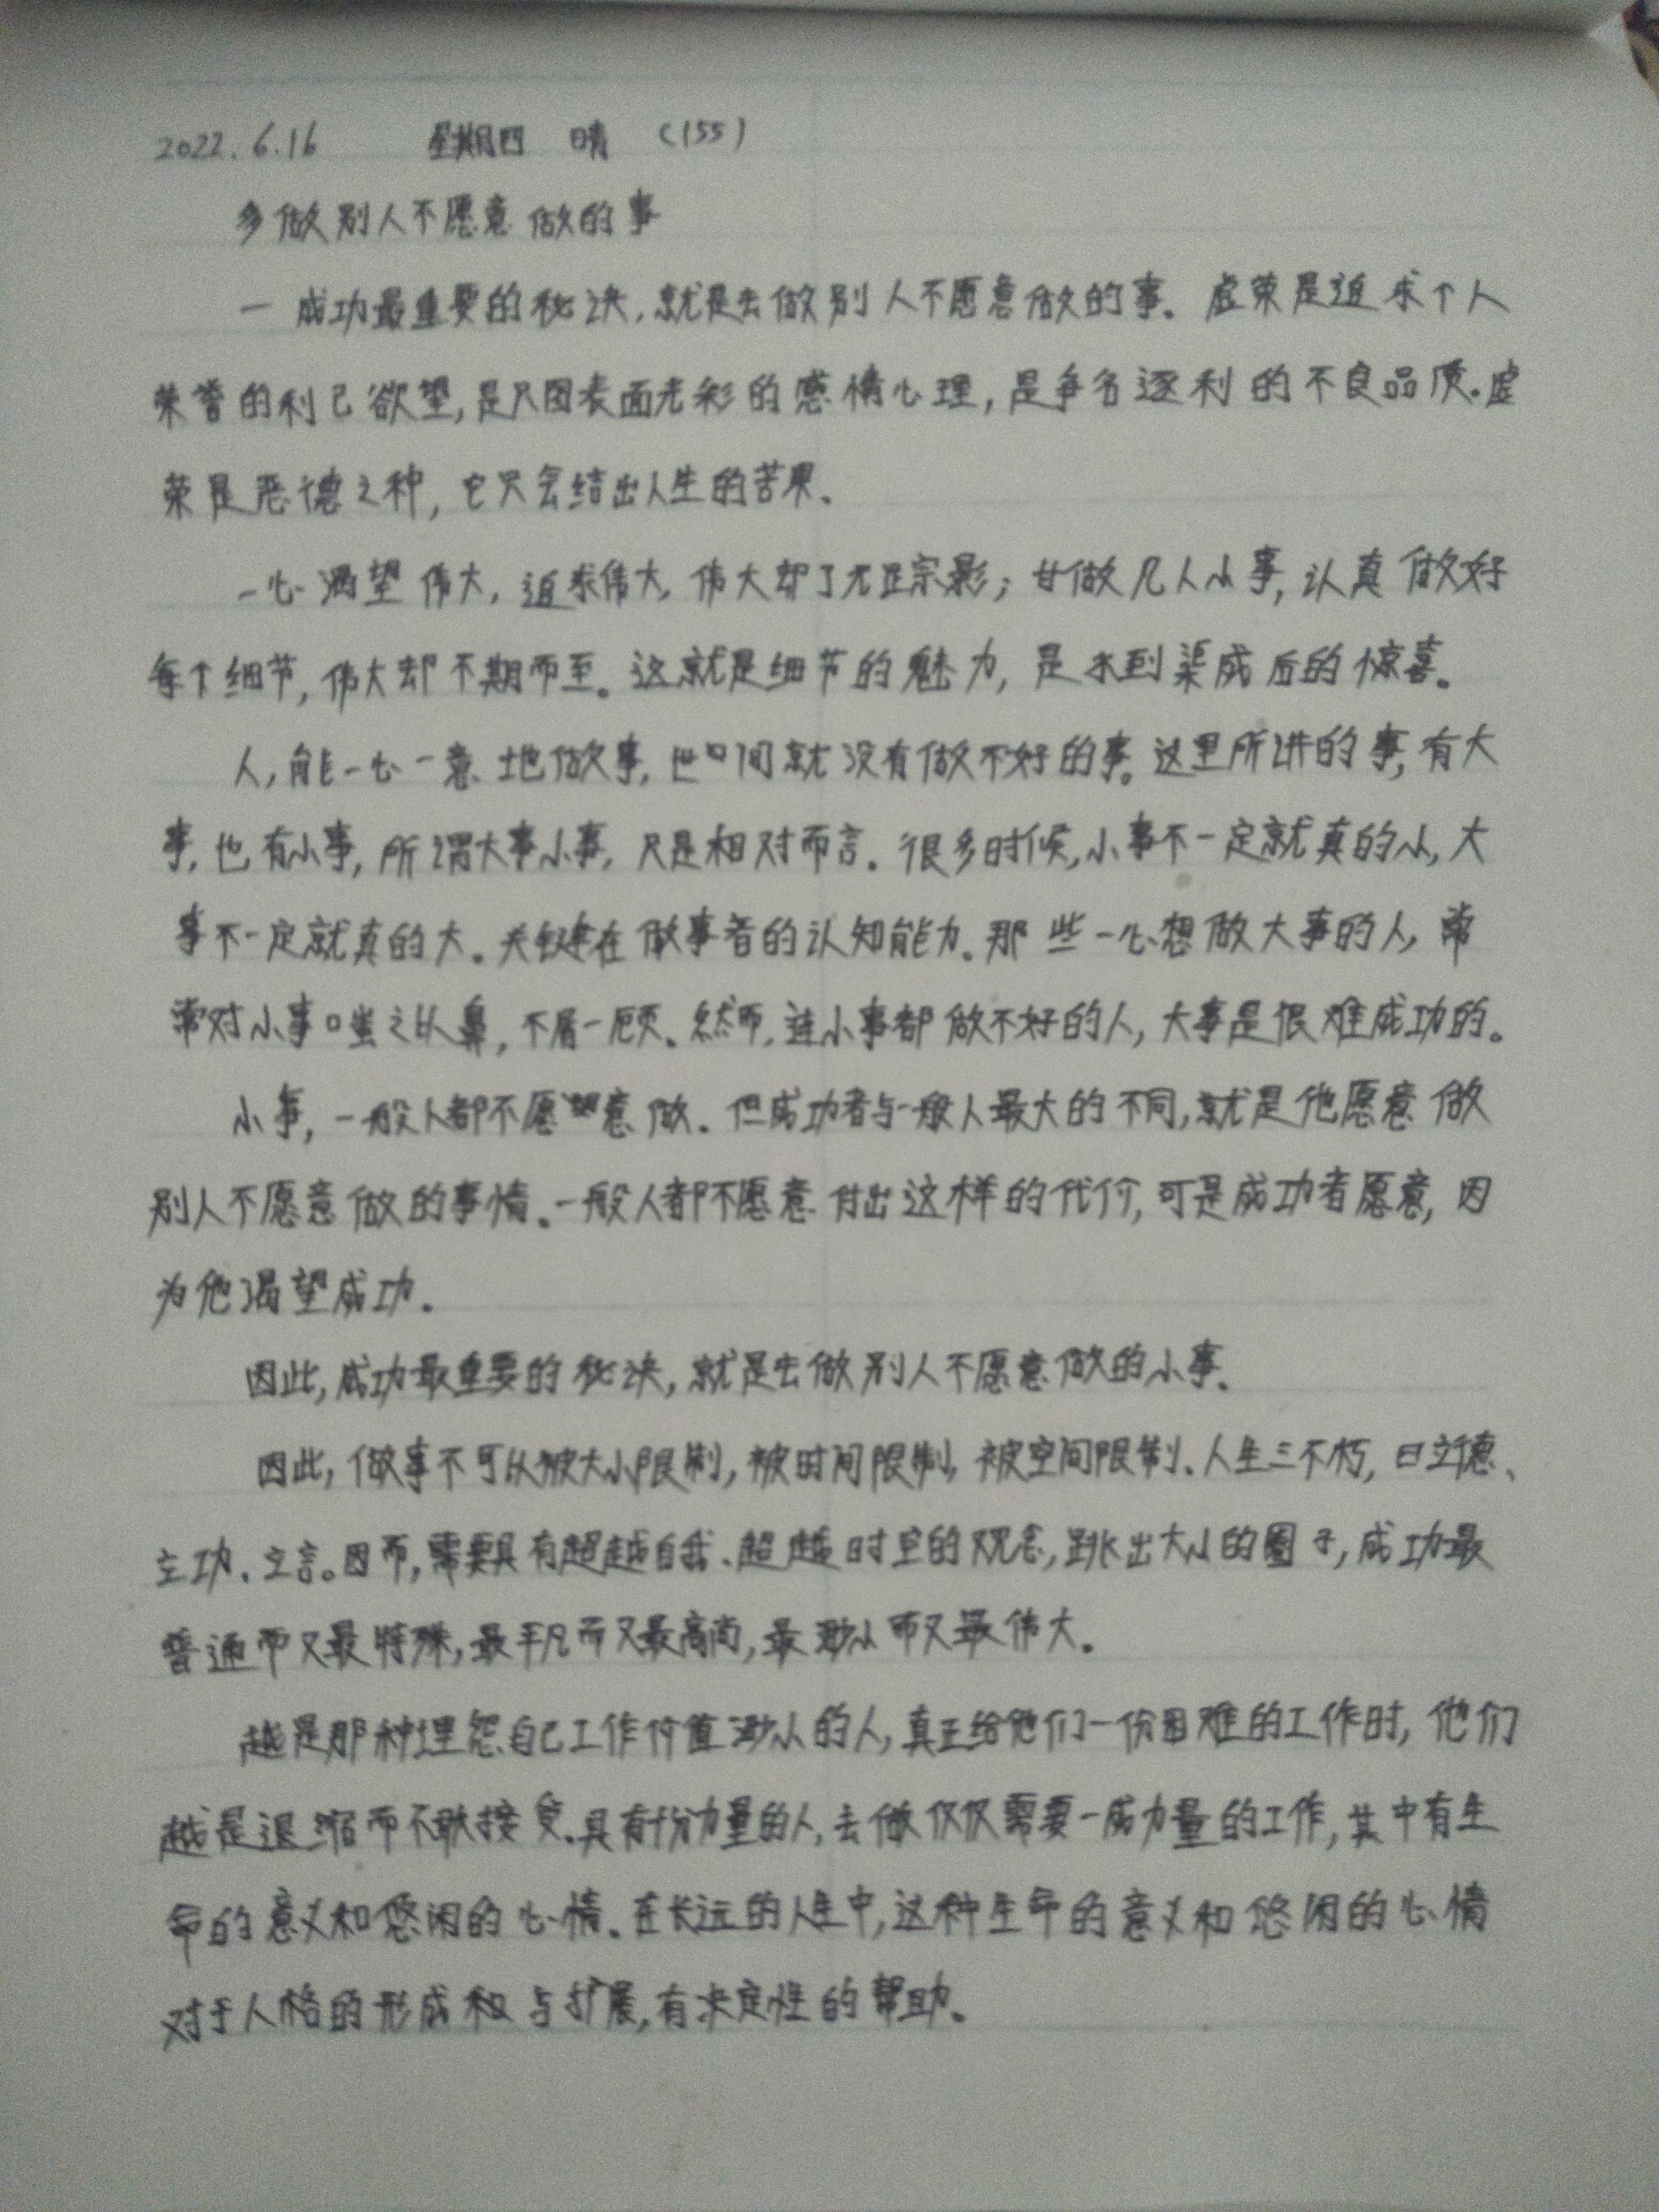 2022.6.16 星期四 晴 (155)
多做别人不愿意做的事
一 成功最重要的秘决,就是去做别人不愿意做的事。虚荣是追求个人
荣誉的利己欲望,是只图表面光彩的感情心理,是争名逐利的不良品质。虚
荣是恶德之种,它只会结出人生的苦果、
一心渴望伟大,追求伟大,伟大却了无踪影;甘做凡人小事,认真做好
每个细节,伟大却不期而至。这就是细节的魅力,是水到渠成后的惊喜。
人,能一心一意地做事,世间就没有做不好的事。这里所讲的事,有大
事,也有小事,所谓大事小事,只是相对而言.很多时候,小事不一定就真的小,大
事不一定就真的大。关键在做事者的认知能力.那些一心想做大事的人,常
常对小事嗤之以鼻,不屑一顾。然而,连小事都做不好的人,大事是很难成功的。
小事,一般人都不愿意做.但成功者与一般人最大的不同,就是他愿意做
别人不愿意做的事情。一般人都不愿意付出这样的代价,可是成功者愿意,因
为他渴望成功.
因此,成功最重要的秘决,就是去做别人不愿意做的小事.
因此,做事不可以被大小限制,被时间限制,被空间限制、人生三不朽,曰立德、
立功、立言。因而,需要具有超越自我、超越时空的观念,跳出大小的圈子,成功最
普通而又最特殊,最平凡而又最高尚,最渺小而又最伟大.
越是那种埋怨自己工作价值渺小的人,真正给他们一份困难的工作时,他们
越是退缩而不敢接受.具有十分力量的人,去做仅仅需要一成力量的工作,其中有生
命的意义和悠闲的心情.在长远的人生中,这种生命的意义和悠闲的心情
对于人格的形成和与扩展,有决定性的帮助。